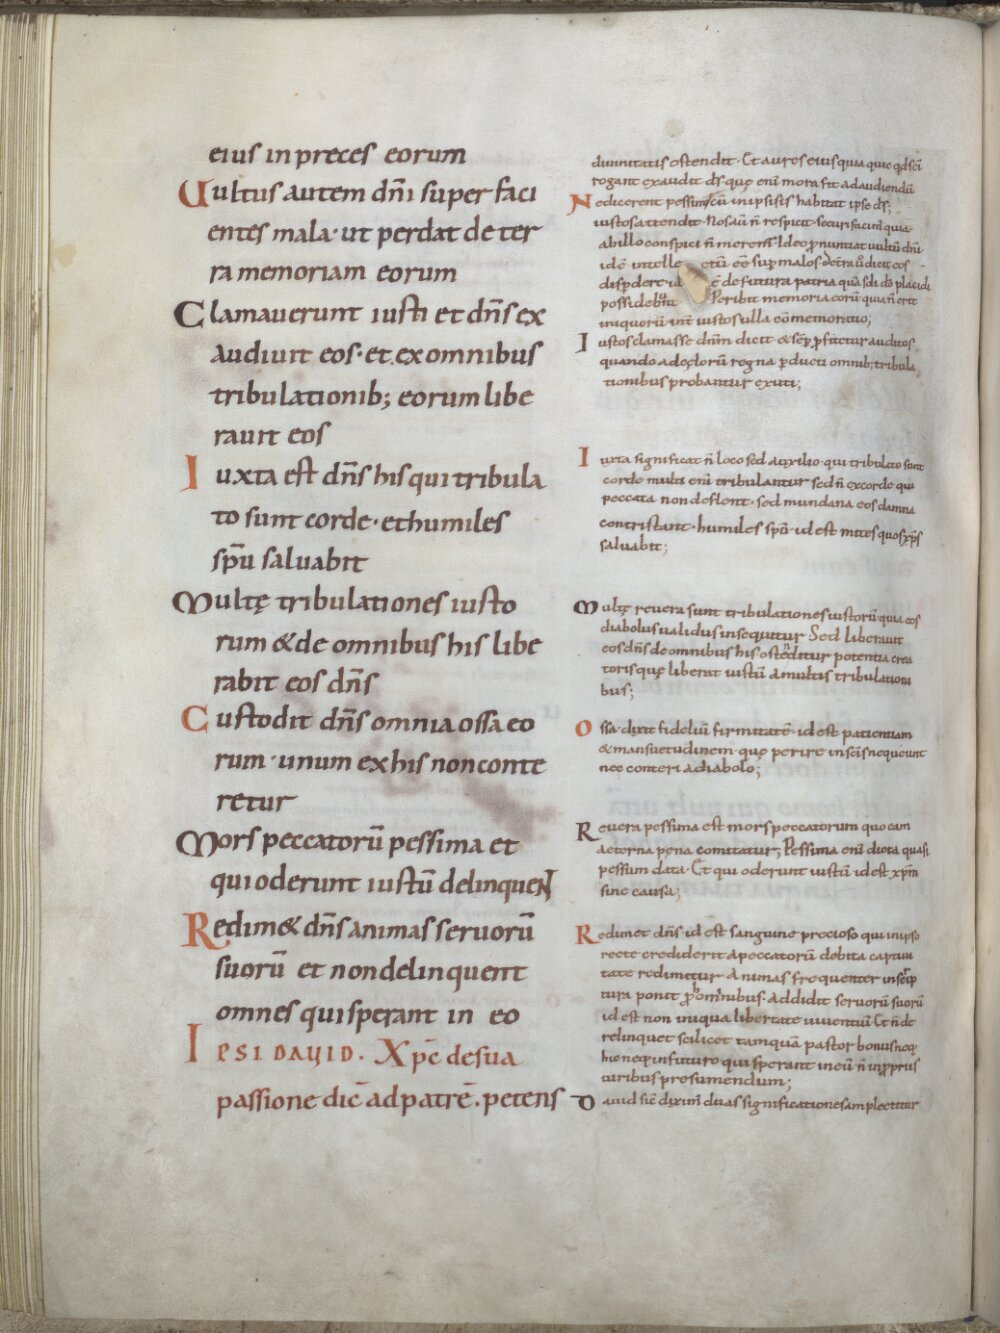 eius in preces eorum
Uultus autem dn̄i super faci
entes mala· ut perdat de ter
ra memoriam eorum
Clamauerunt iusti et dn̄s ex
audiuit eos· et ex omnibus
tribulationib; eorum libe
rauit eos
Iuxta est dn̄s his qui tribula
to sunt corde· et humiles
sp̄u saluabit
Multę tribulationes iusto
rum & de omnibus his libe
rabit eos dn̄s
Custodit dn̄s omnia ossa eo
rum· unum ex his non conte
retur
Mors peccatorū pessima et
qui oderunt iustū delinquent
Redim& dn̄s animas seruorū
suorū et non delinquent
omnes qui sperant in eo
IPSI DAUID. Xp̄c de sua
passione dic̄ ad patrē. petens
diuinitatis ostendit· Et aures eius quia quae qd sc̄i
rogant exaudit ds̄· quę enī mora fit ad audiendū
Ne dicerent pessimi cū in ipsis habitat ipse ds̄;
iustos attendit· Nos aū n̄ respicit· securi facim̄ quia
ab illo conspici n̄ meremr̄ Ideo pronuntiat uultū dn̄i
idē intelle ctū eē sup malos· dicit eos
disperdere ē de futura patria quā sc̄i dō placidi
possidebunt Peribit memoria eorū quia n̄ erit
iniquorū int̄ iustos ulla cōmemoratio;
Iustos clamasse dnm̄ dicit & sēp profitetur auditos
quando ad cęlorū regna pducti omnib; tribula
tionibus probantur exuti;
Iuxta significat n̄ loco sed auxilio· qui tribulato sunt
corde multi enī tribulantur sed n̄ ex corde qui
peccata non deflent· sed mundana eos damna
contristant· humiles sp̄u· id est mites quos xp̄s
saluabit;
Multę reuera sunt tribulationes iustorū quia eos
diabolus ualidus insequitur Sed liberauit
eos dn̄s de omnibus his ostēditur potentia crea
toris quę liberat iustū a multis tribulationi
bus;
Ossa dixit fideliū firmitatē· id est patientiam
& mansuetudinem quę perire in sc̄is nequeunt
nec conteri a diabolo;
Reuera pessima est mors peccatorum quo eam
aeterna pęna comitatur; Pessima enī dicta quasi
pessum data· Et qui oderunt iustū id est xp̄m
sine causa;
Redimet dn̄s id est sanguine precioso qui in ipso
recte crediderit a peccatorū debita captiui
tate redimitur Animas frequenter in scrip
tura ponit pro hominibus· Addidit seruorū suorū
id est non iniqua libertate uiuentiū Et n̄ de
relinquet scilicet tamquā pastor bonus neq
hic neq in futuro qui sperant in eū n̄ in propriis
uiribus presumendum;
Dauid sic̄ diximꝰ duas significationes amplectitur